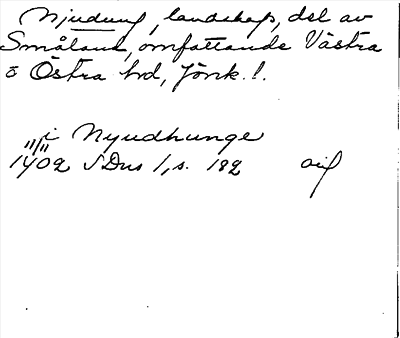 Njudung, landskap, del av
Småland, omfattande Västra
o Östra hd, Jönk. l.
i Nyudhunge
11/11
1402 SDns 1, s. 182 orig